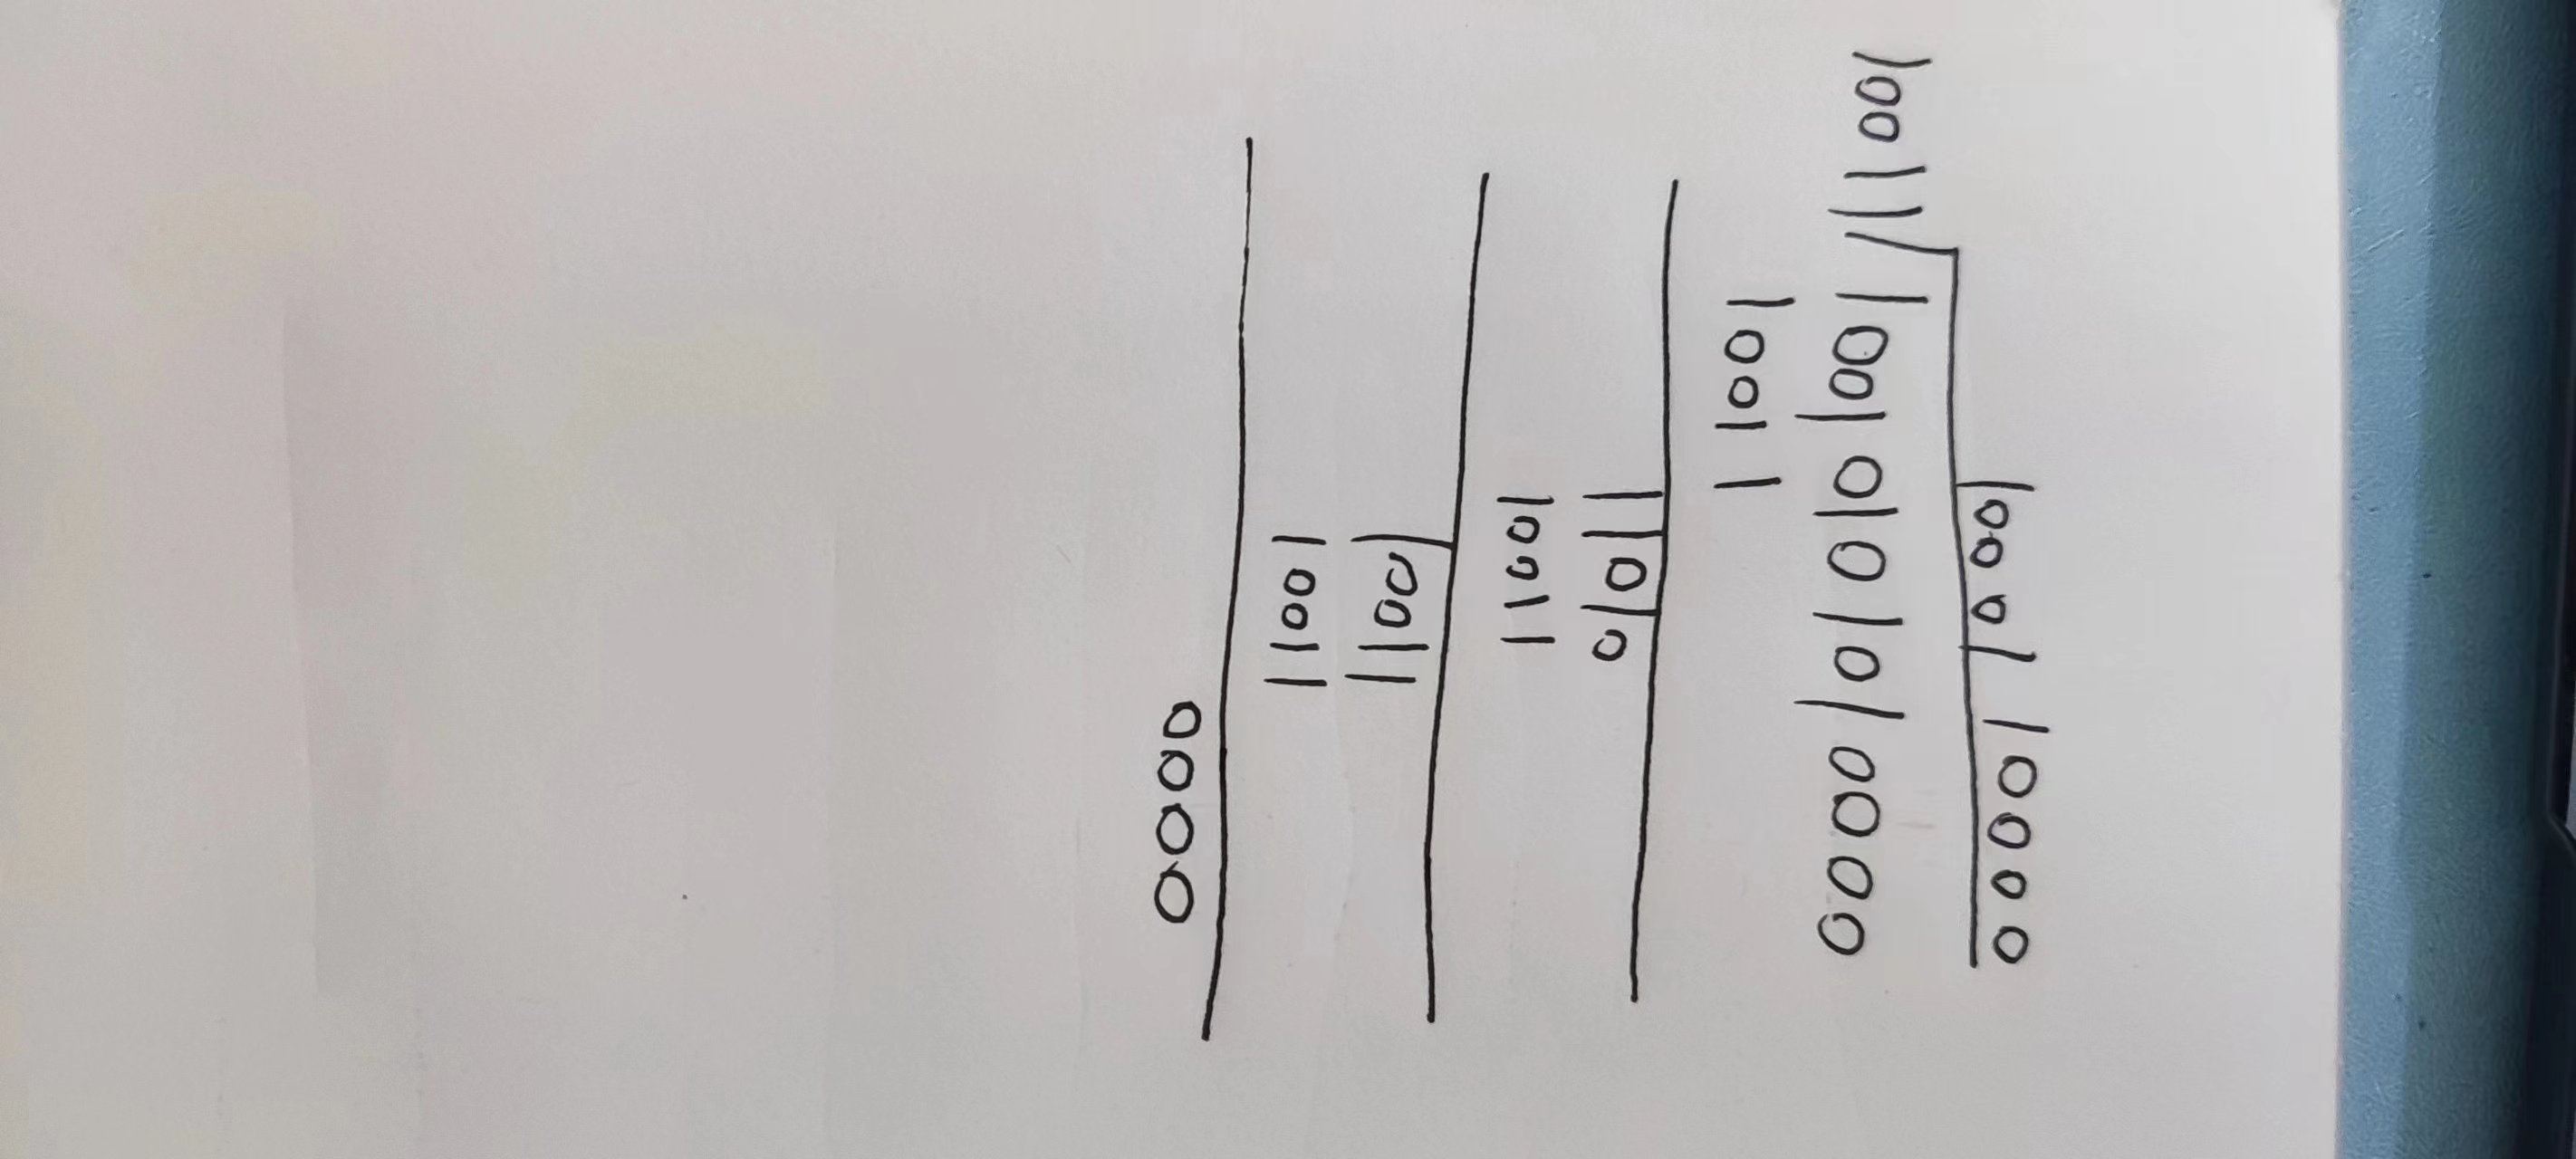 10001 10000
10011 10010101010000
10011
11010
10011
10011
10011
0000